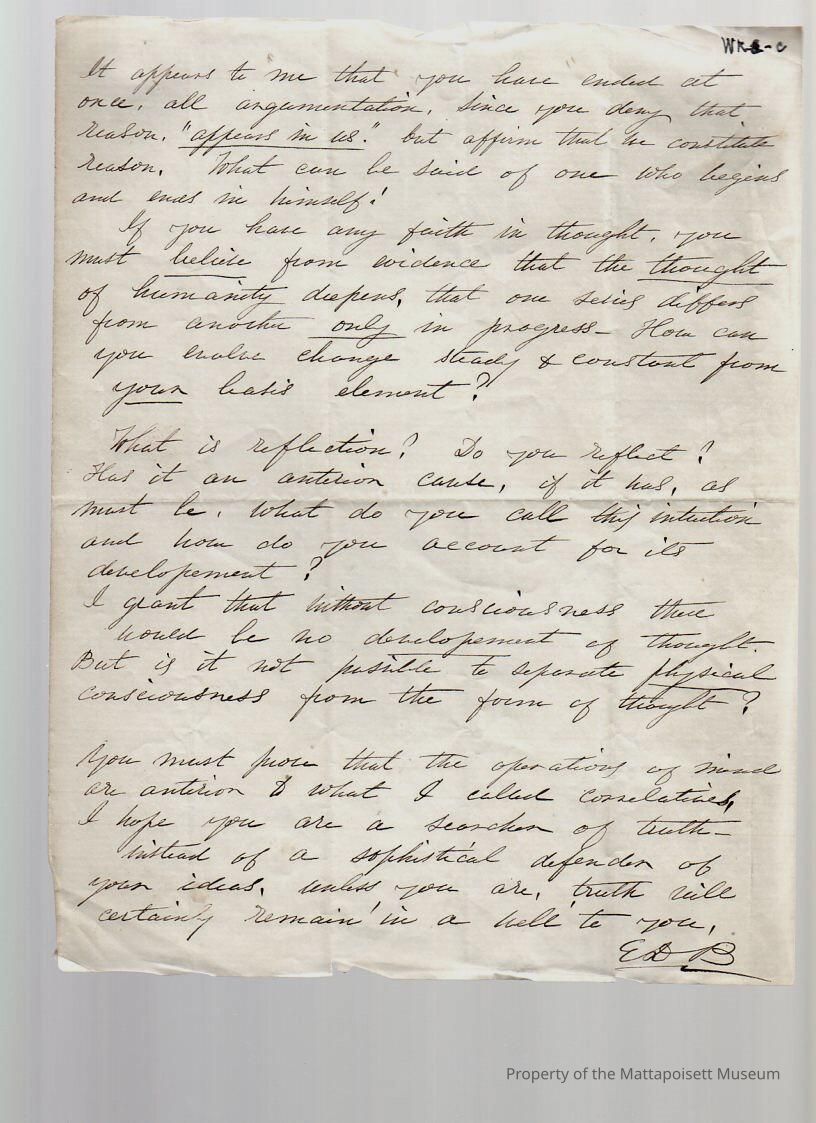 WKS-C
It appears to me that you have ended at
once, all argumentation, since you deny that
reason, "appears in us." but affirm that we constitute
reason. What can be said of one who begins
and ends in himself!
If you have any faith in thought, you
must believe from evidence that the thought
of humanity deepens, that one series differs
from another only in progress - How can
you evolve change steady & constant from
your basis element?
What is reflection? Do you reflect?
Has it an anterior cause, if it has, as
must be, what do you call this intuition
and how do you account for its
developement?
I grant that without consciousness there
would be no developement of thought.
But is it not possible to separate physical
consciousness from the form of thought?
You must prove that the operations of mind
are anterior to what I called correlatives,
I hope you are a searcher of truth -
instead of a sophistical defender of
your ideas, unless you are, truth will
certainly remain in a well to you,
EDB
Property of the Mattapoisett Museum